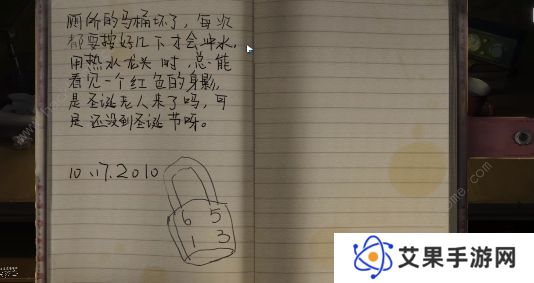 厕所的马桶坏了，每次
都要按好几下才会冲水，
用热水龙头时，总能
看见一个红色的身影，
是圣诞老人来了吗，可
是还没到圣诞节呀。
10.17.2010
6 5
1 3
艾果手游网